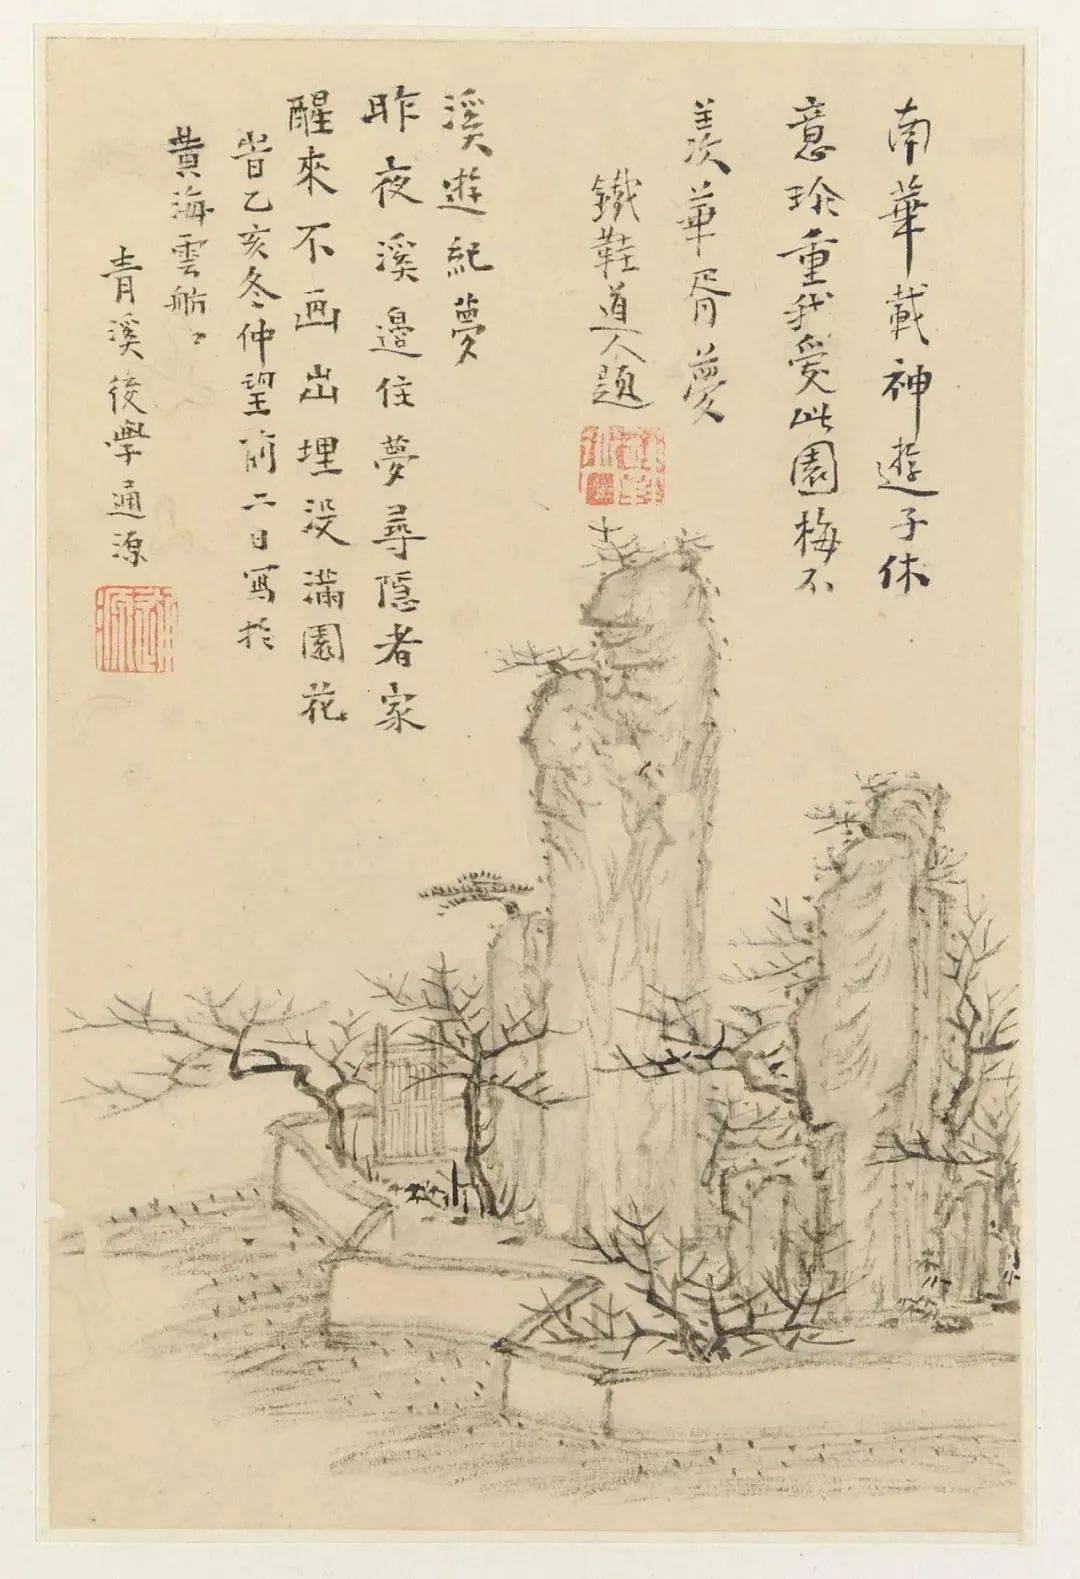 南華載神遊子休
意珍重我愛此園梅不
羨華胥夢
鐵鞋道人題
溪遊紀夢
昨夜溪邊住夢尋隱者家
醒來不画出埋没滿園花
時乙亥冬仲望前二日寫於
黄海雲舫
青溪後學通源